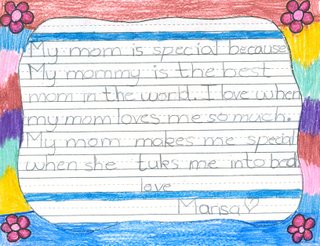 My mom is special because
My mommy is the best
mom in the world. I love when
my mom loves me so much.
My mom makes me special
when she tuks me into bed
love
Marisa♡